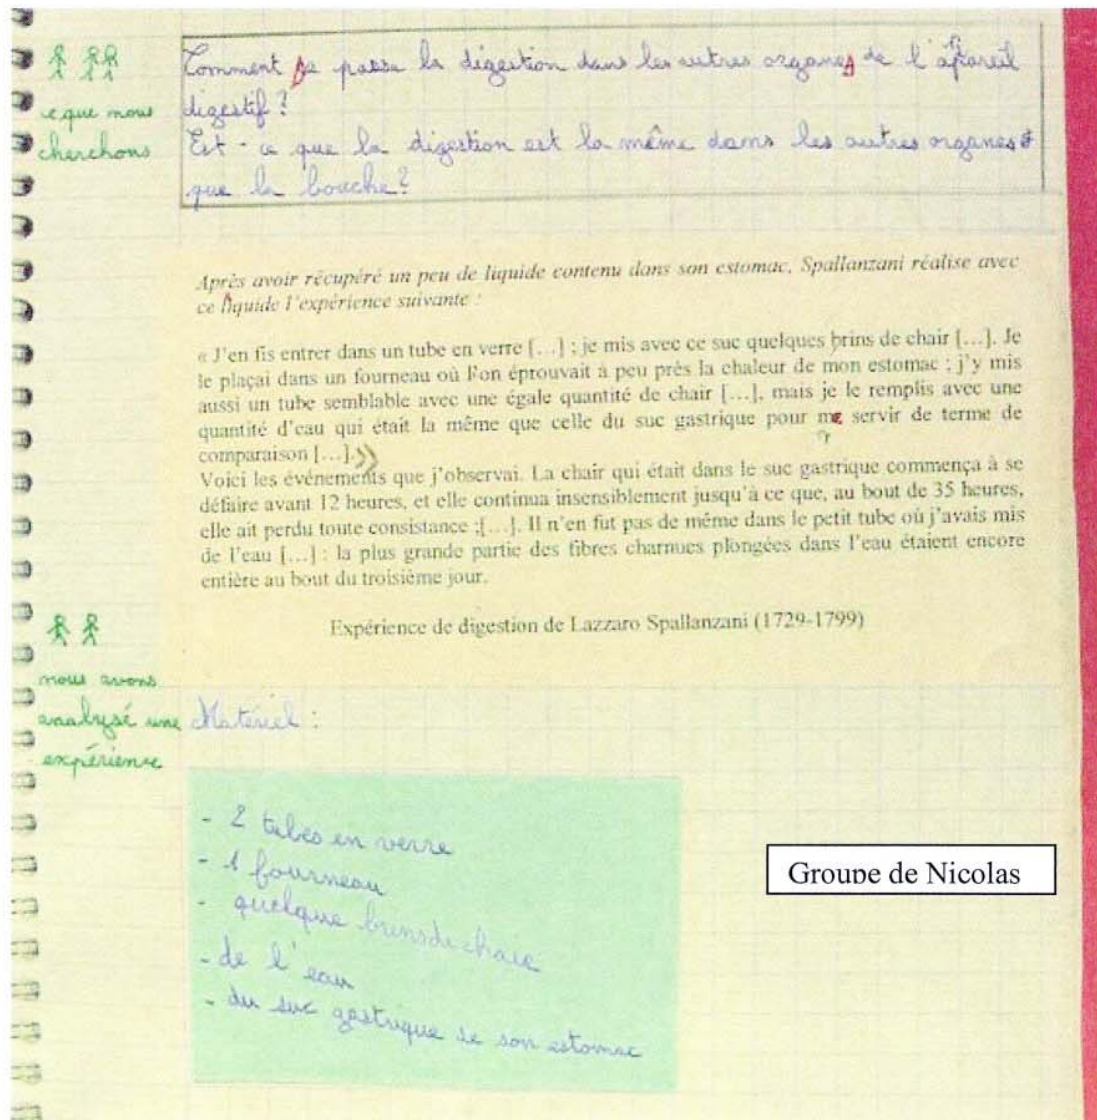 Comment se passe la digestion dans les autres organes de l'appareil
digestif ?
Est-ce que la digestion est la même dans les autres organes
que la bouche ?
ce que nous
cherchons
Après avoir récupéré un peu de liquide contenu dans son estomac, Spallanzani réalise avec
ce liquide l'expérience suivante :
« J'en fis entrer dans un tube en verre […] ; je mis avec ce suc quelques brins de chair […]. Je
le plaçai dans un fourneau où l'on éprouvait à peu près la chaleur de mon estomac ; j'y mis
aussi un tube semblable avec une égale quantité de chair […], mais je le remplis avec une
quantité d'eau qui était la même que celle du suc gastrique pour me servir de terme de
comparaison […].»
Voici les événements que j'observai. La chair qui était dans le suc gastrique commença à se
défaire avant 12 heures, et elle continua insensiblement jusqu'à ce que, au bout de 35 heures,
elle ait perdu toute consistance ;[…]. Il n'en fut pas de même dans le petit tube où j'avais mis
de l'eau […] : la plus grande partie des fibres charnues plongées dans l'eau étaient encore
entière au bout du troisième jour.
Expérience de digestion de Lazzaro Spallanzani (1729-1799)
nous avons
analysé une
expérience
Matériel :
- 2 tubes en verre
- 1 fourneau
- quelque brins de chair
- de l'eau
- du suc gastrique de son estomac
Groupe de Nicolas